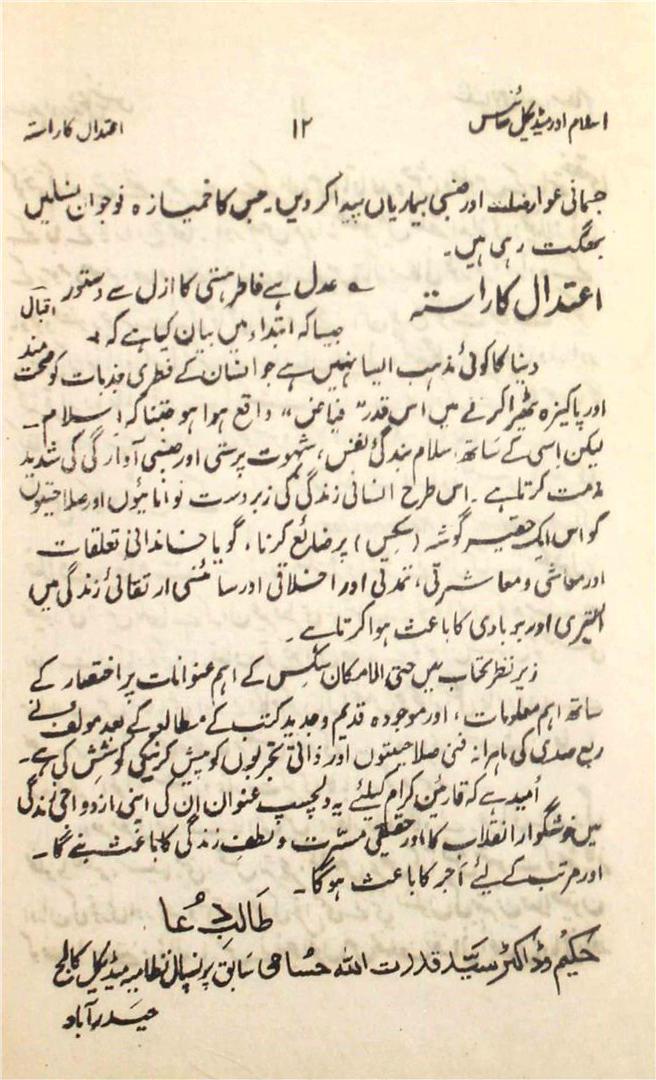 اسلام اور میڈیکل سائنس ۱۲ اعتدال کا راستہ
جسمانی عوارضات اور جنسی بیماریاں پیدا کر دیں۔ جس کا خمیازہ نوجوان نسلیں
بھگت رہی ہیں۔
اعتدال کا راستہ ؎ عدل ہے فاطر ہستی کا ازل سے دستور اقبال
جیسا کہ ابتداء میں بیان کیا ہے کہ
دنیا کا کوئی مذہب ایسا نہیں ہے جو انسان کے فطری جذبات کو صحت مند
اور پاکیزہ ٹھیرا کرنے میں اس قدر "فیاض" واقع ہوا ہو جتنا کہ اسلام۔
لیکن اسی کے ساتھ اسلام بندگیٔ نفس، شہوت پرستی اور جنسی آوارگی کی شدید
مذمت کرتا ہے۔ اس طرح انسانی زندگی کی زبردست توانائیوں اور صلاحیتوں
کو اس ایک حقیر گوشہ (سکیس) پر ضائع کرنا، گویا خاندانی تعلقات
اور معاشی و معاشرتی، تمدنی اور اخلاقی اور سائنسی ارتقائی زندگی میں
ابتیری اور بربادی کا باعث ہوا کرتا ہے۔
زیر نظر کتاب میں حتی الامکان سیکس کے اہم عنوانات پر اختصار کے
ساتھ اہم معلومات، اور موجودہ قدیم و جدید کتب کے مطالعہ کے بعد مولف نے
ربع صدی کی ماہرانہ فنی صلاحیتوں اور ذاتی تجربوں کو پیش کرنیکی کوشش کی ہے۔
اُمید ہے کہ قارئین کرام کیلئے یہ دلچسپ عنوان اِن کی اپنی ازدواجی زندگی
میں خوشگوار انقلاب کا اور حقیقی مسّرت و لطفِ زندگی کا باعث بنے گا۔
اور مرتب کے لیئے اَجر کا باعث ہوگا۔
طالبِ دُعا
حکیم و ڈاکٹر سیّد قدرت اللہ حسامی سابق پرنسپال نظامیہ میڈیکل کالج
حیدرآباد